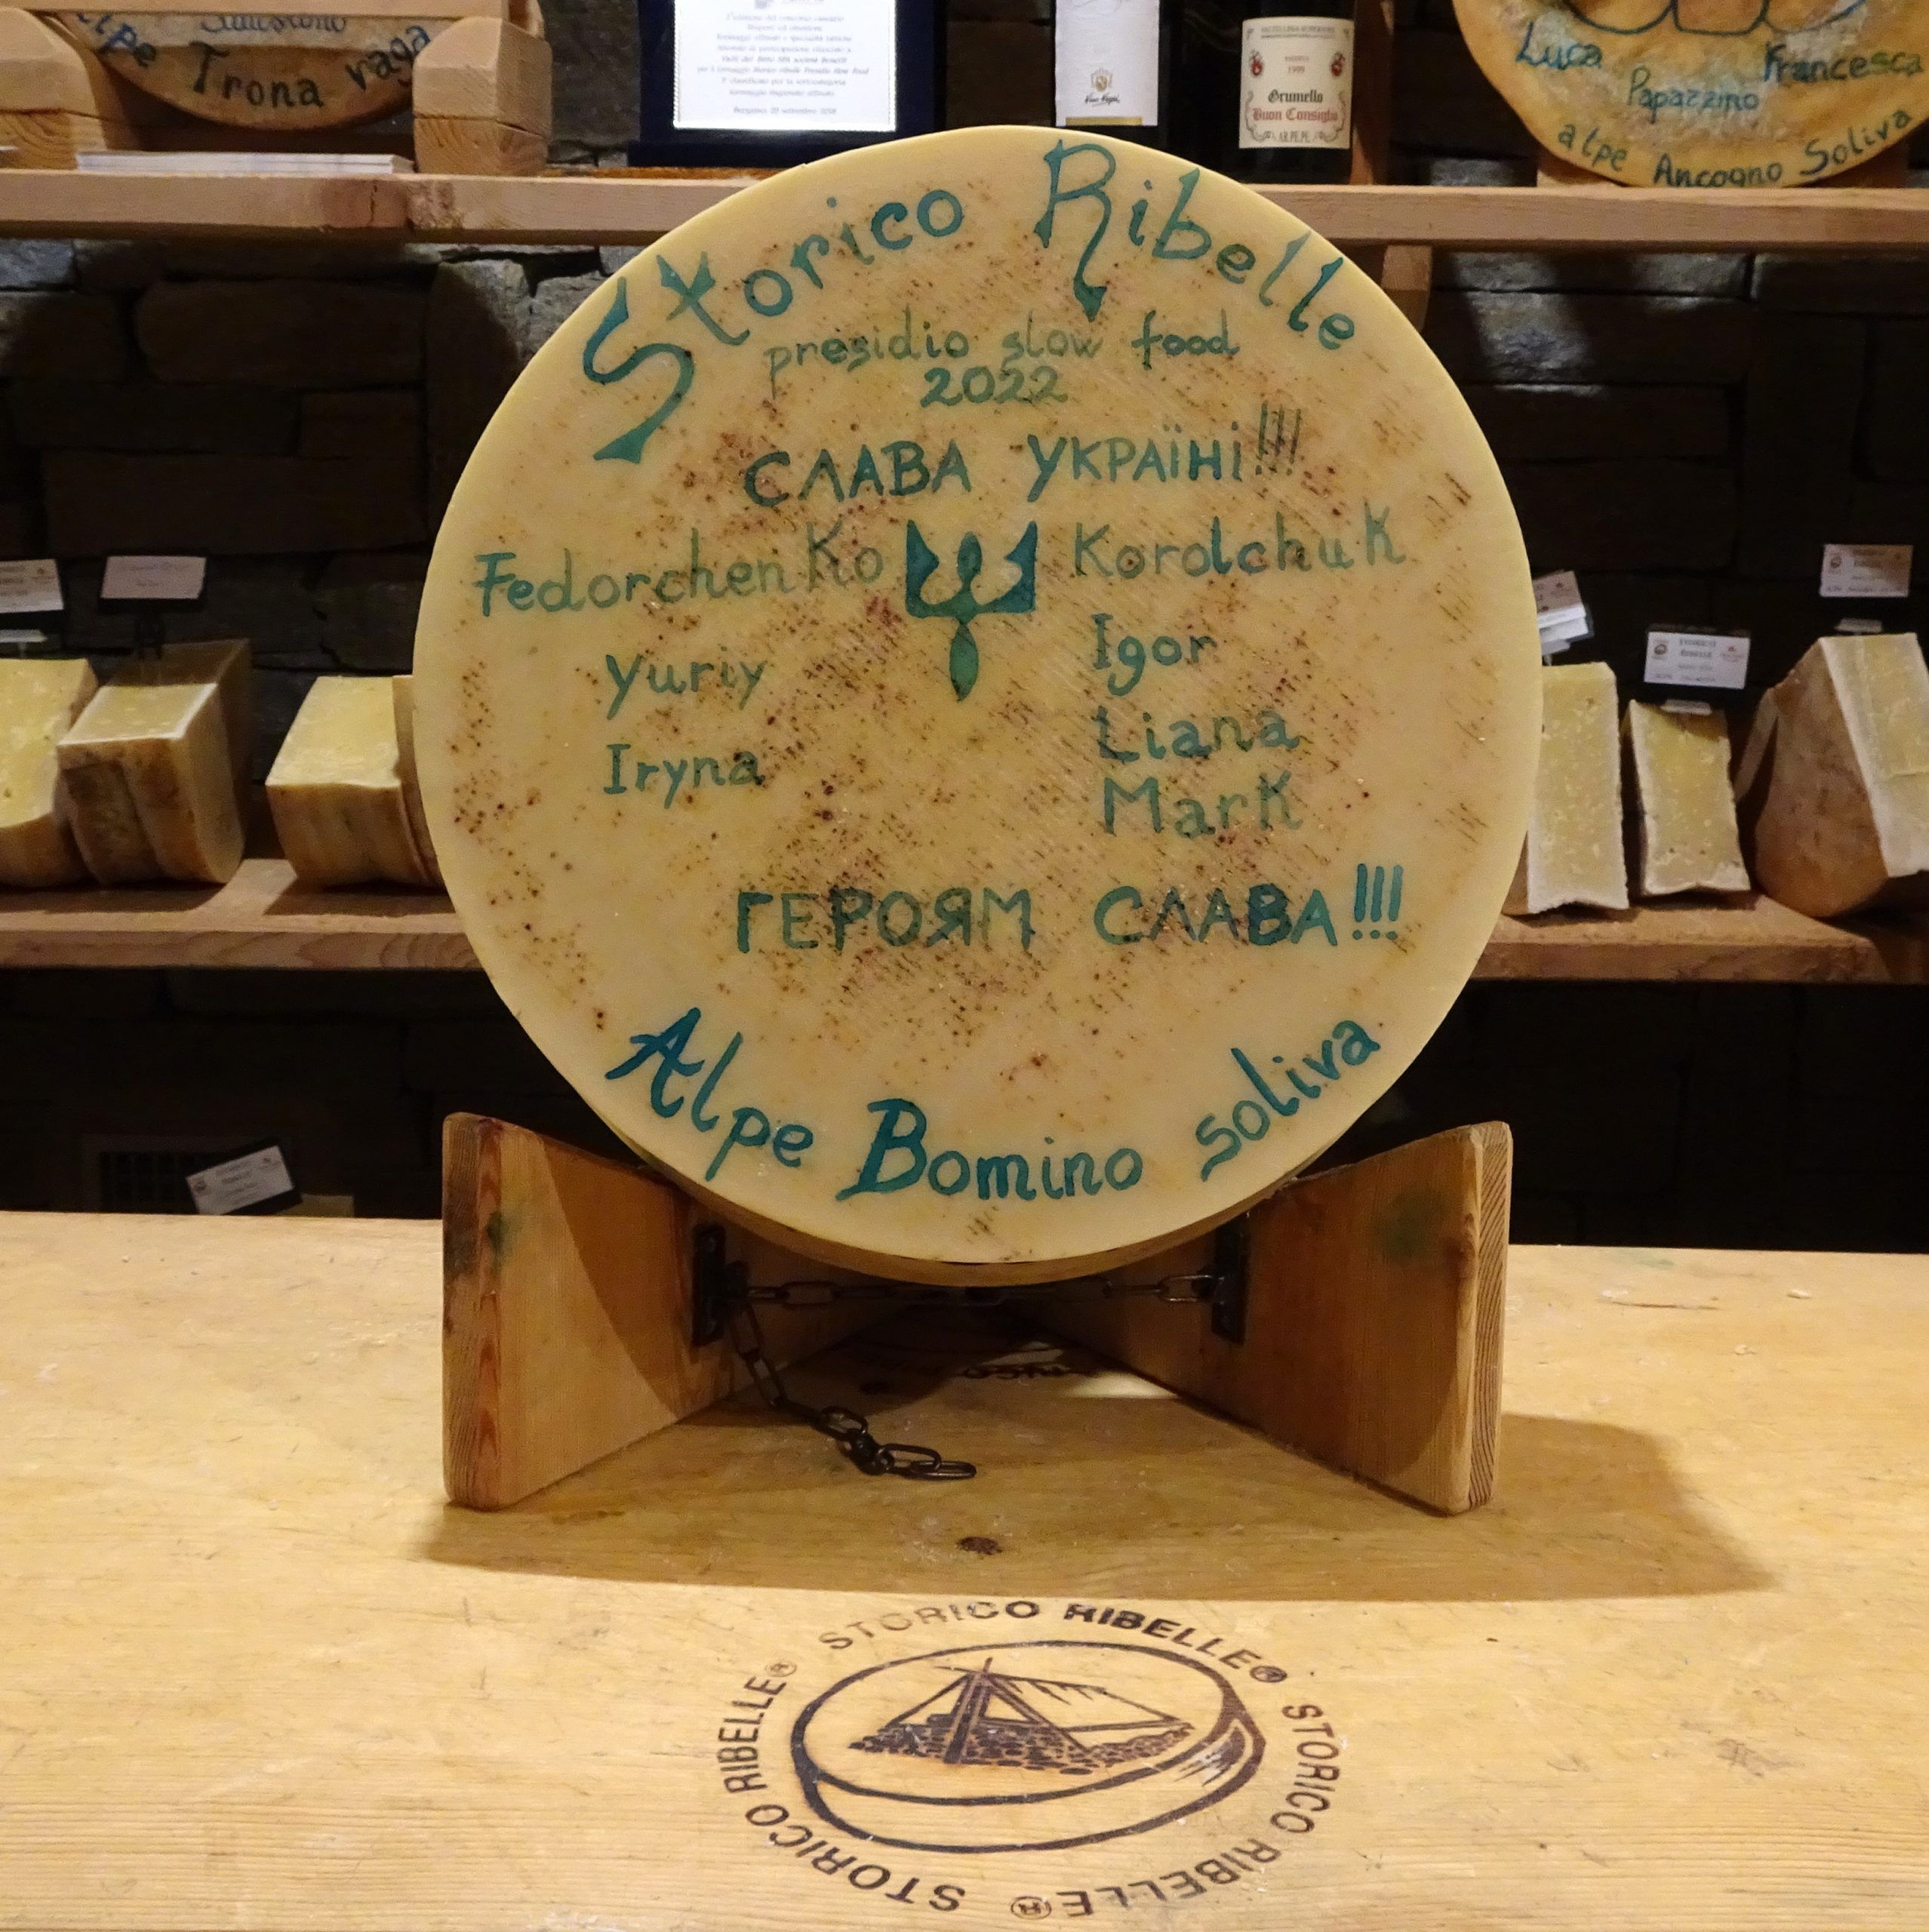 alpe Trona vaga
Bergamo, 20 settembre 2018
1999
Grumello
Buon Consiglio
AR.PE.PE.
Luca
Francesca
Papazzino
alpe Ancogno Soliva
Storico Ribelle
presidio slow food
2022
СЛАВА УКРАЇНІ!!!
Fedorchenko
Korolchuk
Yuriy
Igor
Iryna
Liana
Mark
ГЕРОЯМ СЛАВА!!!
Alpe Bomino soliva
STORICO RIBELLE® STORICO RIBELLE® STORICO RIBELLE®